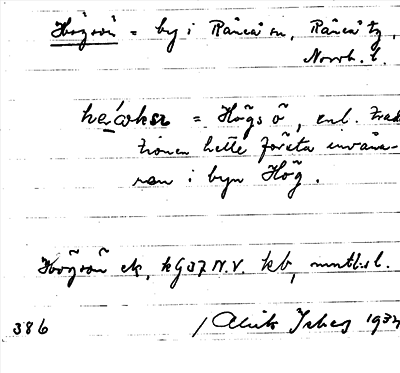 Högsön = by i Råneå sn, Råneå tg,
Norrb. l.
= Högs ö, enl. trad
tionen hette första invåna-
ren i byn Hög.
Högsön ek, kg 37 N.V. kb, mntl. l.
386 / 1932